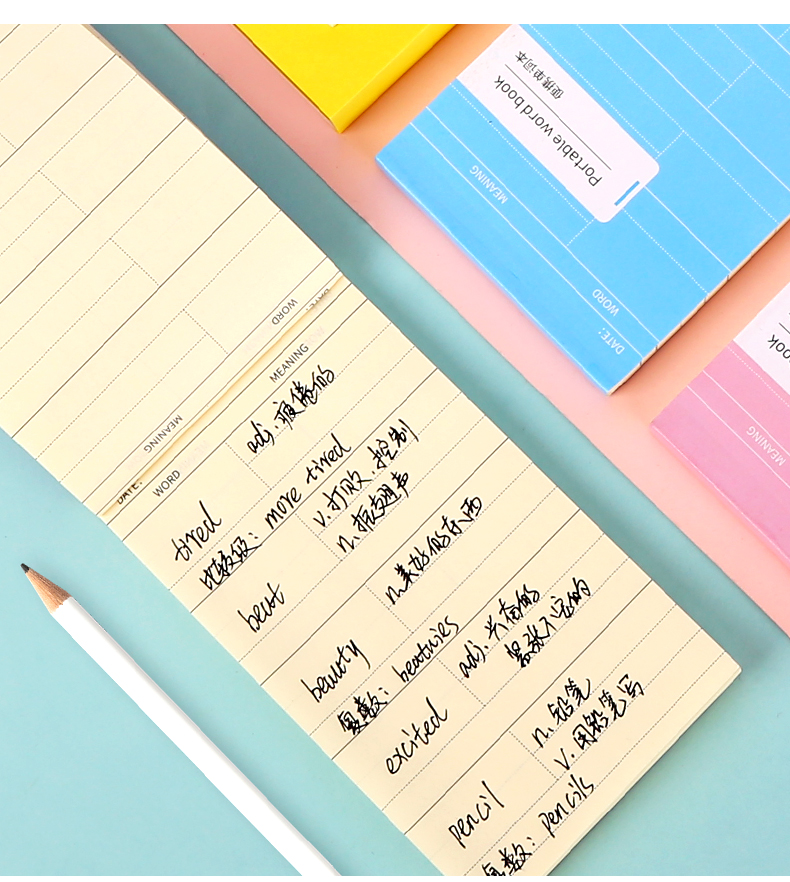 便携单词本
Portable word book
MEANING
WORD
DATE:
book
MEANING
WORD
MEANING
DATE:
DATE:
WORD
MEANING
tired
adj. 疲倦的
比较级: more tired
beat
v. 打败. 控制
n. 拍.翅声
beauty
n. 美好的东西
复数: beatuies
excited
adj. 兴奋的
激动不定的
pencil
n. 铅笔
v. 用铅笔写
复数: pencils